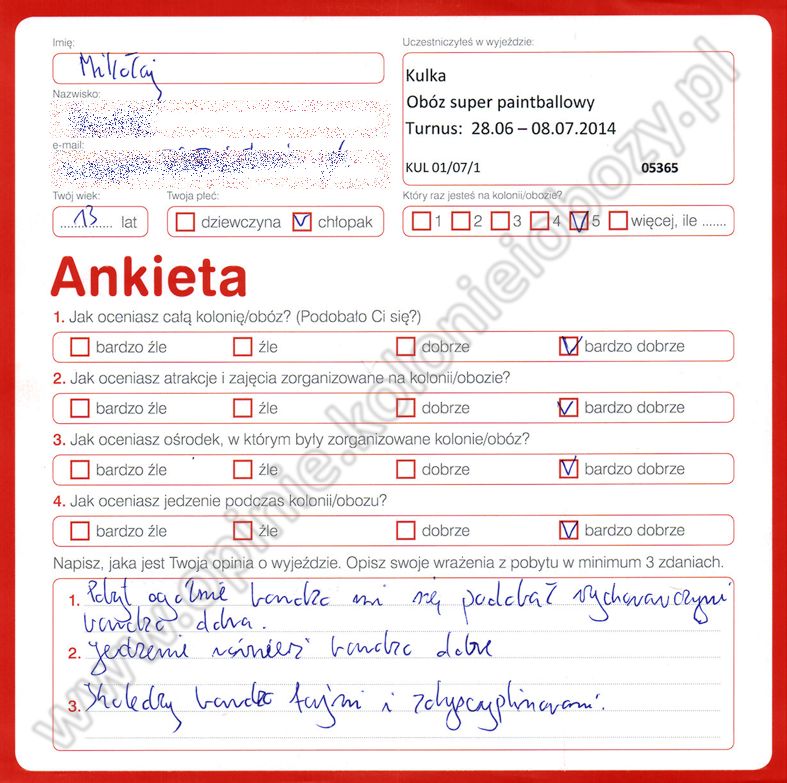 Imię:
Mikołaj
Uczestniczyłeś w wyjeździe:
Kulka
Obóz super paintballowy
Turnus: 28.06 – 08.07.2014
KUL 01/07/1 05365
Nazwisko:
e-mail:
Twój wiek:
13 lat
Twoja płeć:
dziewczyna chłopak
Który raz jesteś na kolonii/obozie?
1 2 3 4 5 więcej, ile .......
Ankieta
1. Jak oceniasz całą kolonię/obóz? (Podobało Ci się?)
bardzo źle źle dobrze bardzo dobrze
2. Jak oceniasz atrakcje i zajęcia zorganizowane na kolonii/obozie?
bardzo źle źle dobrze bardzo dobrze
3. Jak oceniasz ośrodek, w którym były zorganizowane kolonie/obóz?
bardzo źle źle dobrze bardzo dobrze
4. Jak oceniasz jedzenie podczas kolonii/obozu?
bardzo źle źle dobrze bardzo dobrze
Napisz, jaka jest Twoja opinia o wyjeździe. Opisz swoje wrażenia z pobytu w minimum 3 zdaniach.
1. Pobyt ogólnie bardzo mi się podobał
bardzo dobra.
2. jedzenie również bardzo dobre
3. bardzo fajni i zdyscyplinowani.
www.opinie.kolonieiobozy.pl